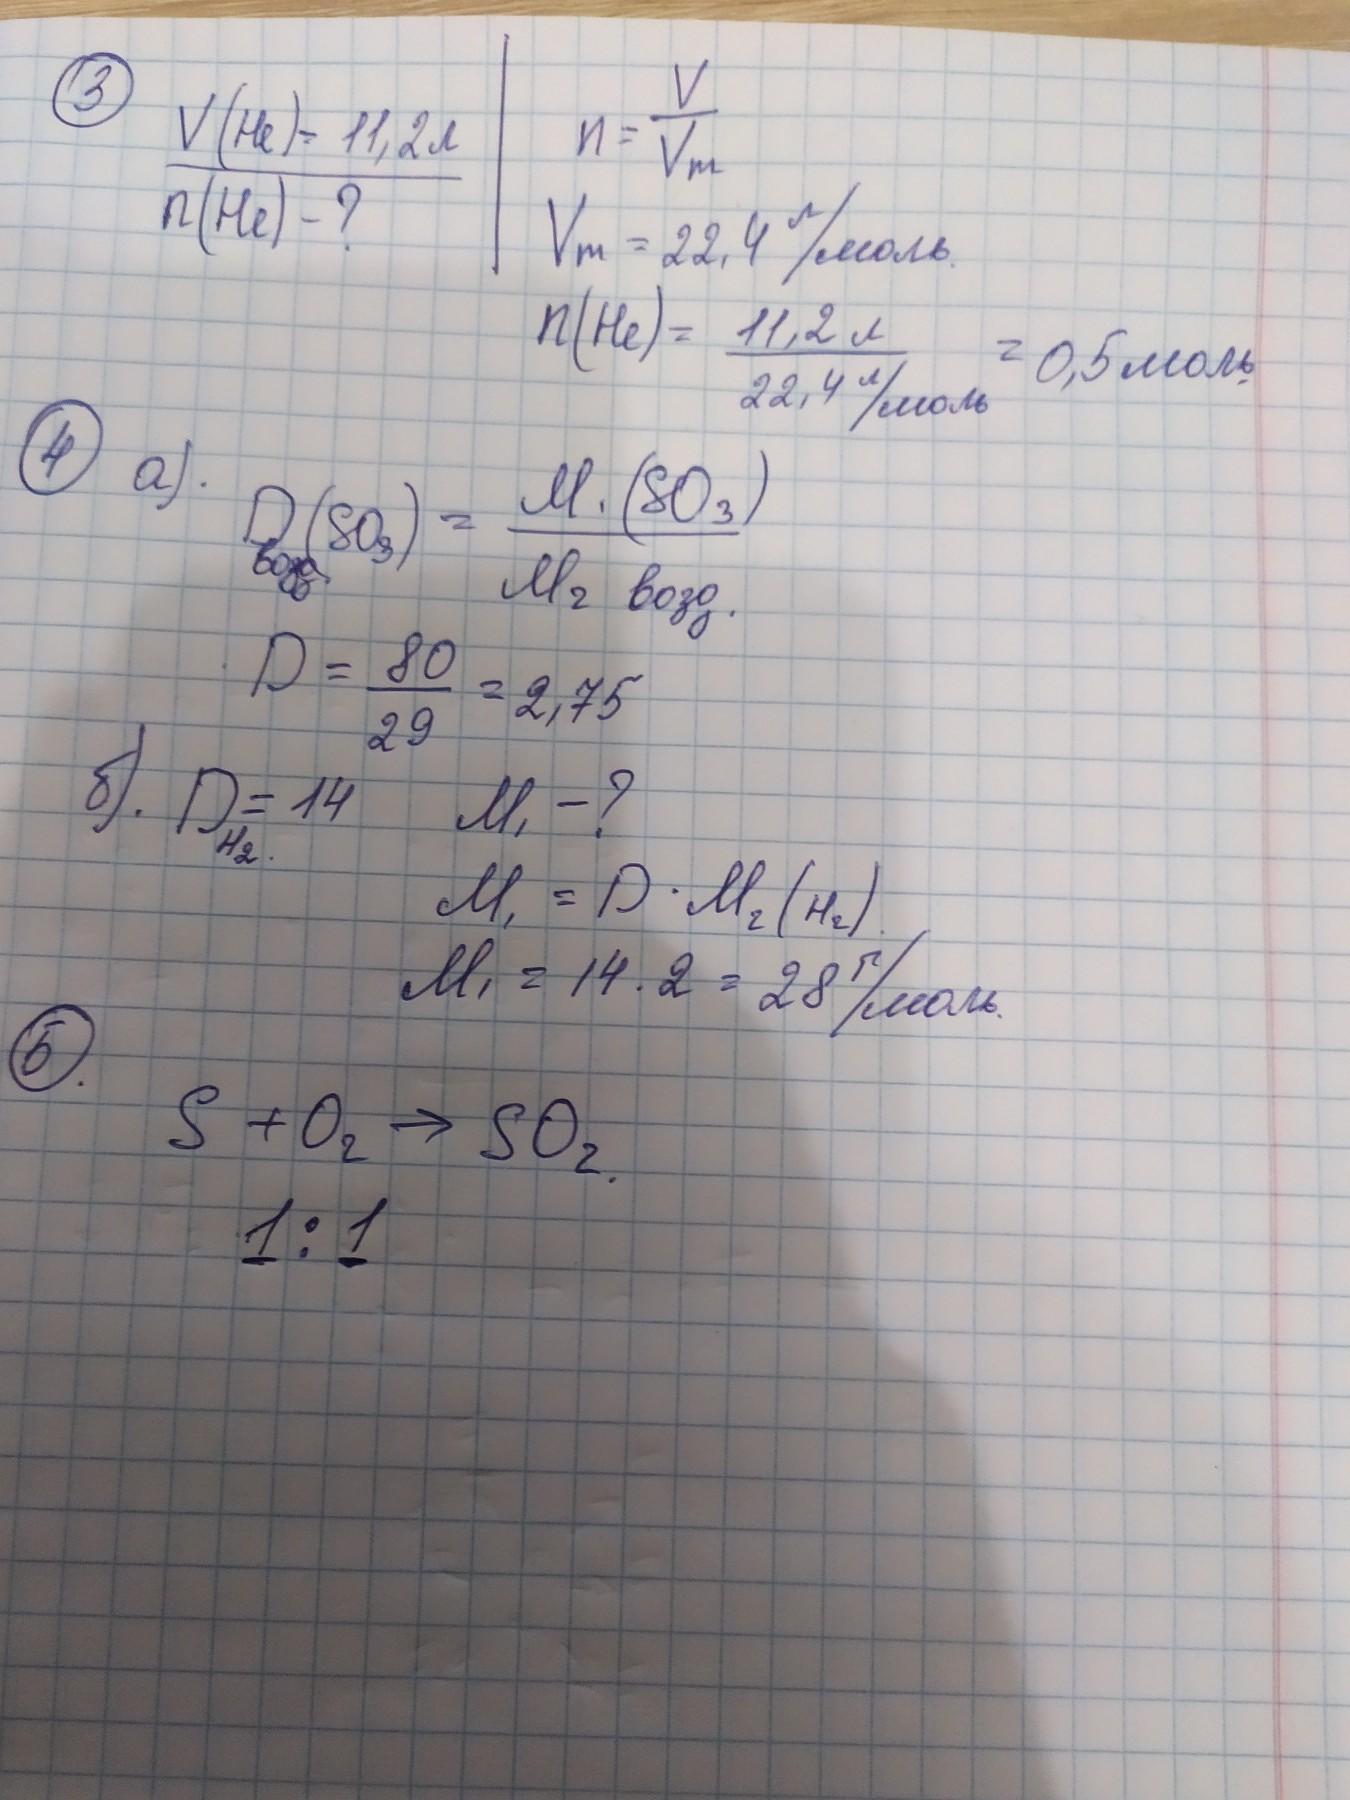 3
V(He) = 11,2 л
n(He) - ?
n = V/Vm
Vm = 22,4 л/моль.
n(He) = 11,2 л / 22,4 л/моль = 0,5 моль.
4 а).
D возд. (SO3) = M1 (SO3) / M2 возд.
D = 80/29 = 2,75
б). D H2. = 14 M1 - ?
M1 = D · M2 (H2).
M1 = 14 . 2 = 28 г/моль.
5.
S + O2 → SO2.
1 : 1